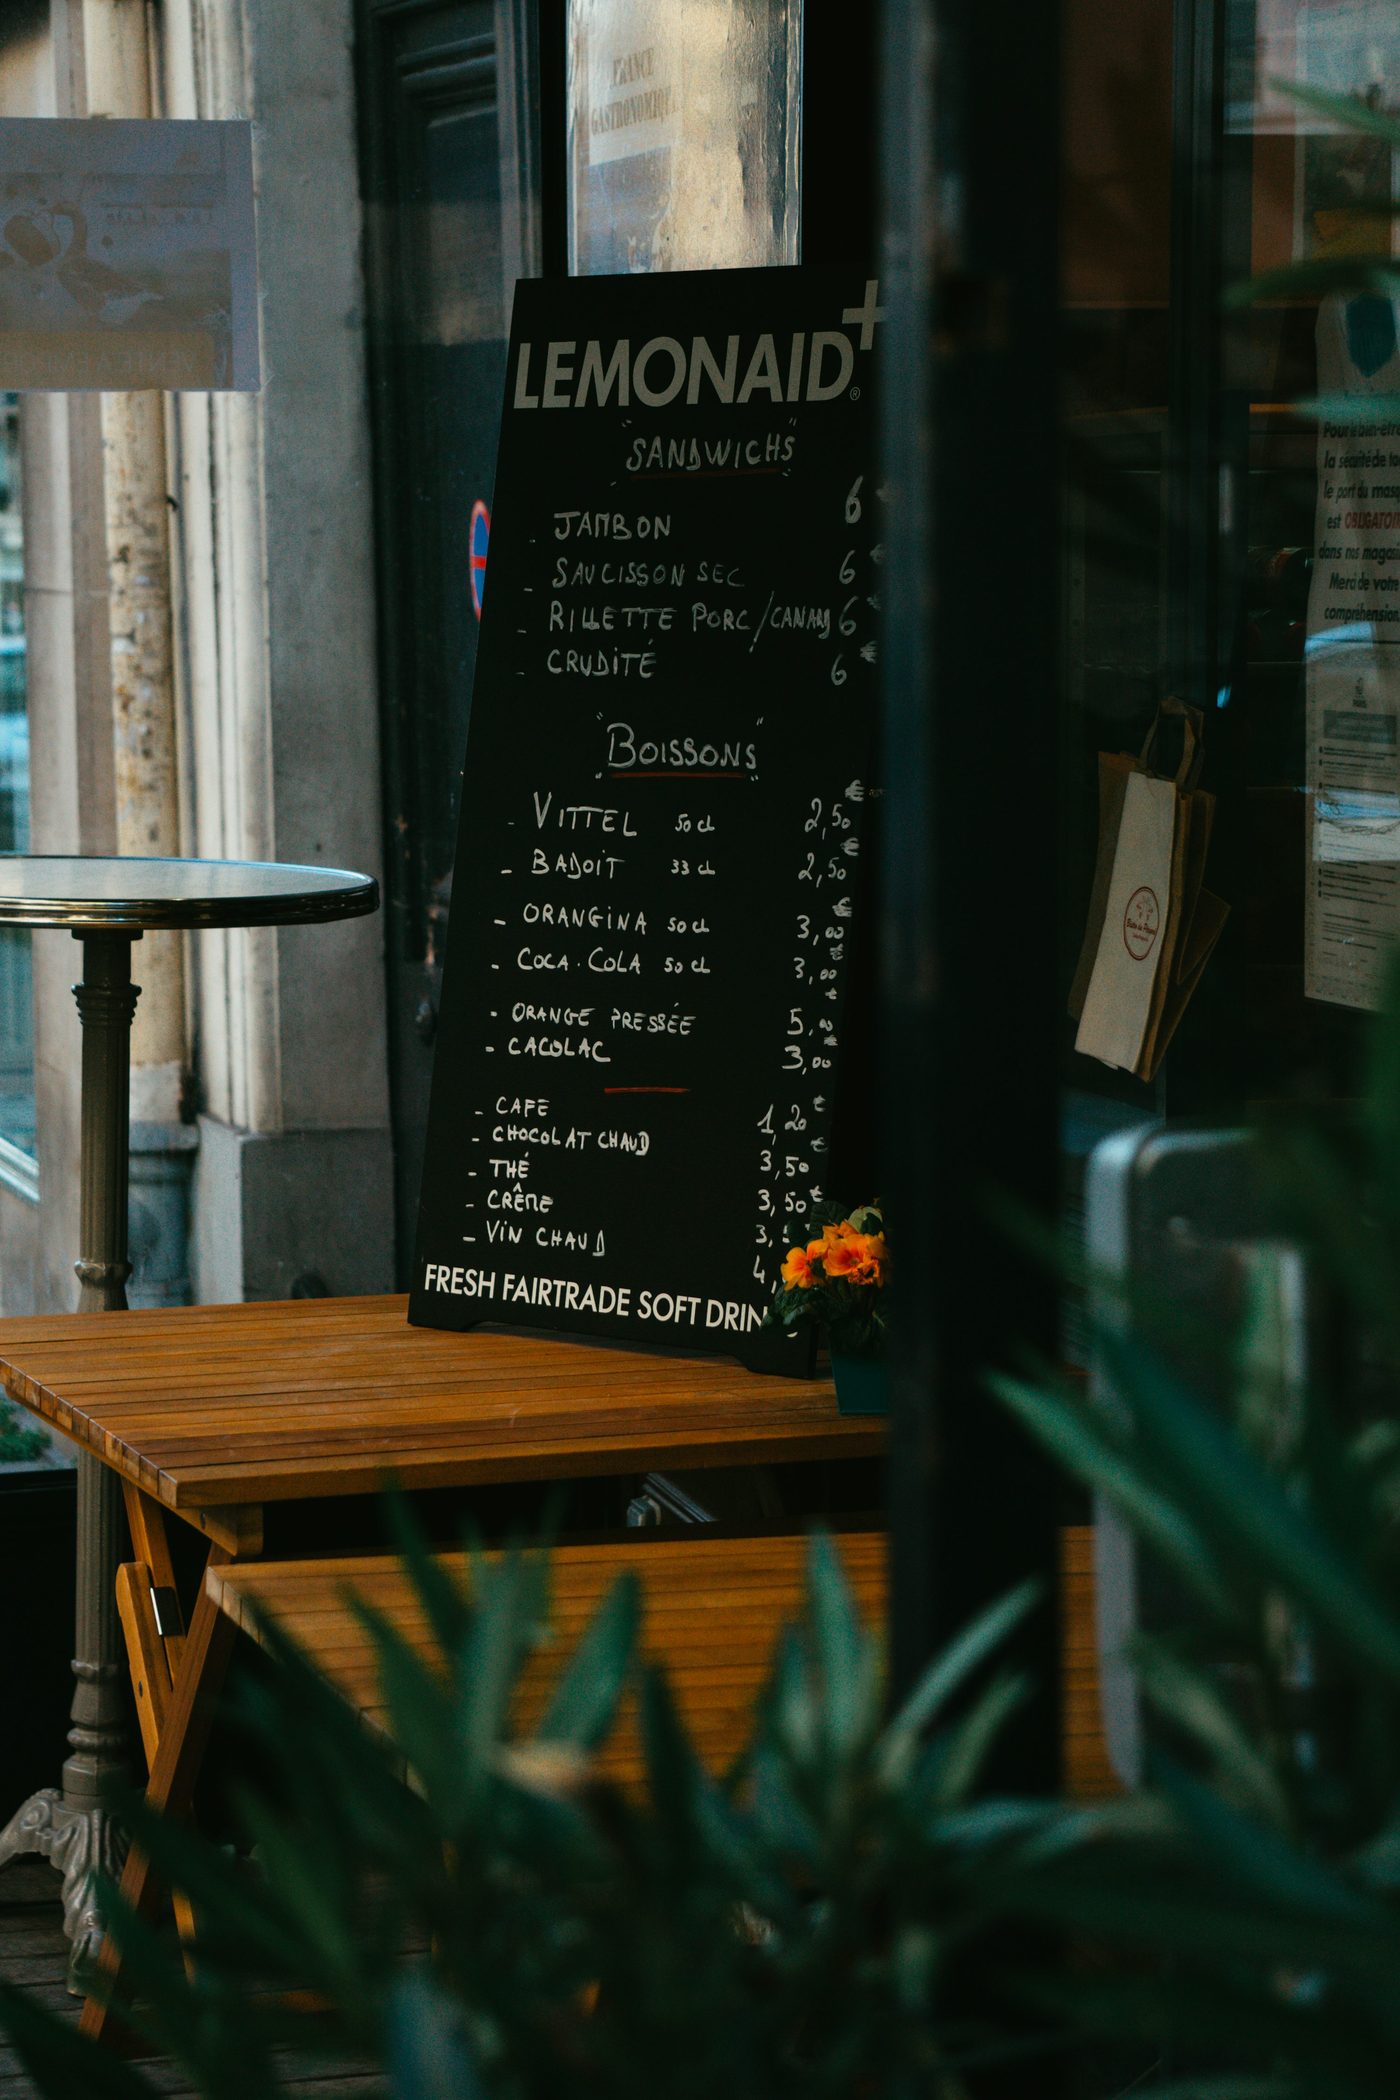 FRANCE
GASTRONOMIQUE
LEMONAID+®
"SANDWICHS"
- JAMBON 6 €
- SAUCISSON SEC 6 €
- RILLETTE PORC/CANARD 6 €
- CRUDITÉ 6 €
"BOISSONS"
- VITTEL 50 cl 2,50 €
- BADOIT 33 cl 2,50 €
- ORANGINA 50 cl 3,00 €
- COCA-COLA 50 cl 3,00 €
- ORANGE PRESSÉE 5,00 €
- CACOLAC 3,00 €
- CAFE 1,20 €
- CHOCOLAT CHAUD 3,50 €
- THÉ 3,50 €
- CRÊME 3,
- VIN CHAUD 4,
FRESH FAIRTRADE SOFT DRIN
Pour le bien-être
la sécurité de to
le port du masq
est OBLIGATOI
dans nos magas
Merci de votre
compréhension